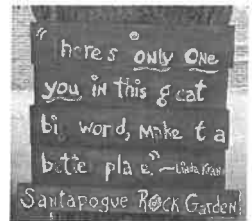 "heres only one
you in this g eat
bi word, Make t a
bette pla e." ~Linda Kranz
Santapogue Rock Garden